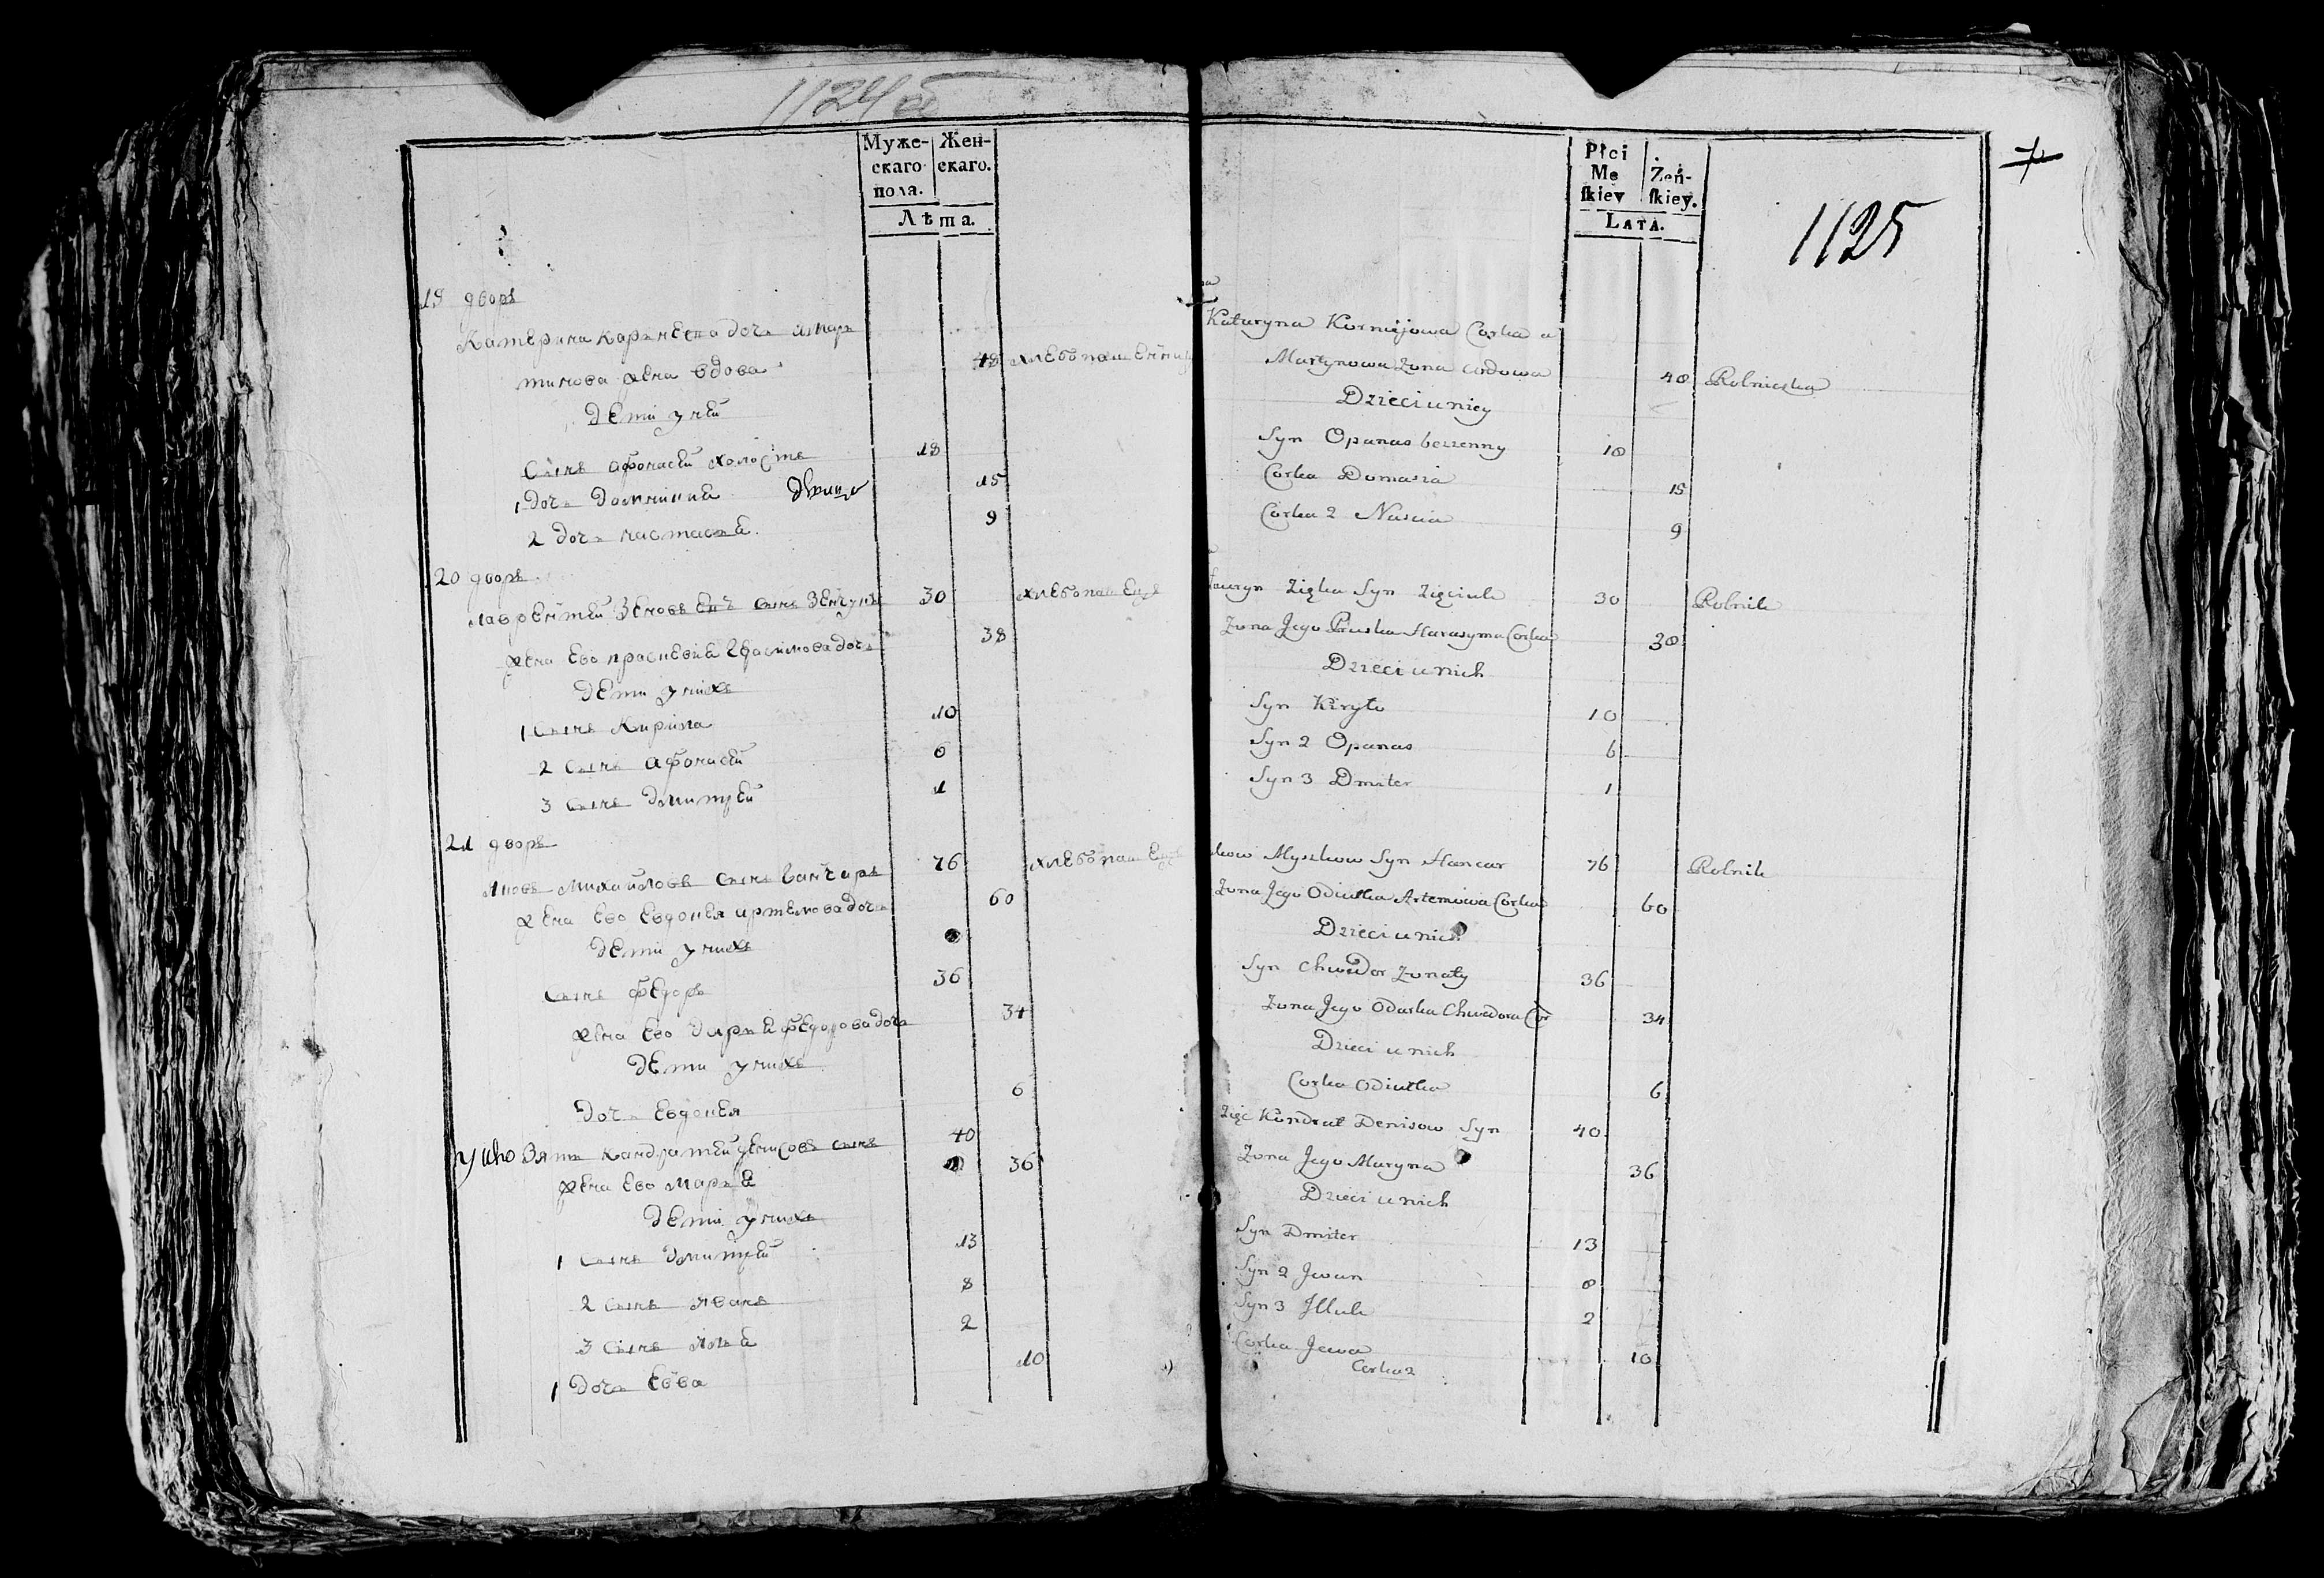 1124об
Муже-
скаго
пола.
Жен-
скаго.
Лѣта.
19 дворъ
Катерина карнеева дочь а мар
тинова жена вдова 48 хлебопашенница
дети у ней
Сынъ афонасей холостъ 18
1 Дочь домникия девица 15
2 дочь настасья 9
20 дворъ
лаврентей зеновъевъ сынъ 30 хлебопашецъ
жена ево прасковия герасимова дочь 38
дети у нихъ
1 сынъ Кирила 10
2 сынъ афонасей 6
3 сынъ дмитрей 1
21 дворъ
Яковъ михайловъ сынъ ганчаръ 76 хлебопашецъ
жена ево евдокея артемова дочь 60
дети у нихъ
сынъ федоръ 36
жена ево дарья федорова дочь 34
дети у нихъ
дочь евдокея 6
зять кандратей денисовъ сынъ 40
жена ево марья 36
дети у нихъ
1 сынъ дмитрей 13
2 сынъ иванъ 8
3 сынъ илья 2
1 дочь евва 10
Płci
Me
skiey
Żeń-
skiey.
LATA.
7
1125
Kataryna Korniejowa Corka a
Martynowa Zona wdowa 48 Rolniczka
Dzieci u niey
Syn Opanas bezzenny 18
Corka Domasia 15
Corka 2 Nascia 9
Lauryn Ziąka Syn 30 Rolnik
Zona Jego Pruska Harasyma Corka 38
Dzieci u nich
Syn Kiryło 10
Syn 2 Opanas 6
Syn 3 Dmiter 1
Myszkow Syn Hancar 76 Rolnik
Zona Jego Odiutka Artemowa Corka 60
Dzieci u nich
Syn Chwedor Zonaty 36
Zona Jego Odarka Chwedora Cor 34
Dzieci u nich
Corka Odiutka 6
Zięc Kondrat Denisow Syn 40
Zona Jego Maryna 36
Dzieci u nich
Syn Dmiter 13
Syn 2 Jwan 8
Syn 3 Jlluk 2
Corka Jewa 10
Corka 2